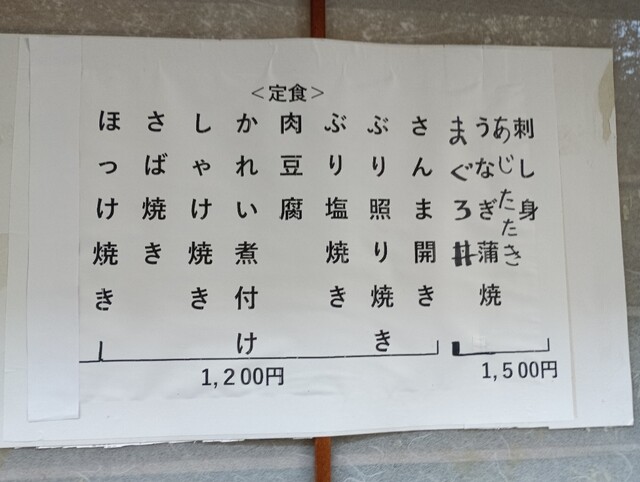 ＜定食＞
刺し身
あじたたき
うなぎ蒲焼
まぐろ丼
さんま開き
ぶり照り焼き
ぶり塩焼き
肉豆腐
かれい煮付け
しゃけ焼き
さば焼き
ほっけ焼き
1,500円
1,200円